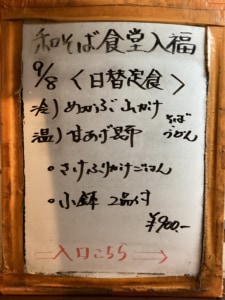 和そば食堂入福
9/8 〈日替定食〉
冷) めかぶ山かけ
温) 甘あげ
そば
うどん
・さけふりかけごはん
・小鉢 2品付
¥900.-
入口こちら